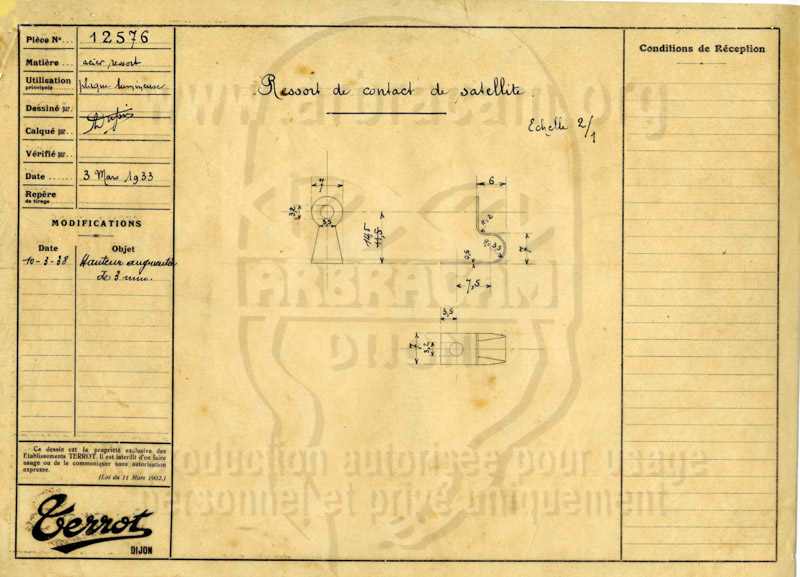 Pièce N°... 12576
Matière... acier ressort
Utilisation
principale... plaque lumineuse
Dessiné par.
Calqué par..
Vérifié par..
Date ...... 3 Mars 1933
Repère
de tirage......
MODIFICATIONS
Date Objet
10-3-38 Hauteur augmentée
de 3 mm.
Ce dessin est la propriété exclusive des
Etablissements TERROT. Il est interdit d'en faire
usage ou de le communiquer sans autorisation
expresse.
(Loi du 11 Mars 1902.)
Terrot
DIJON
Ressort de contact de satellite.
Echelle 2/1
7
3,2
3,5
14,5
11,5
6
R:2
R:3,5
7
0,5
7,5
3,5
7
3,2
Conditions de Réception
www.arbracam.org
ARBRACAM
DIJON
Reproduction autorisée pour usage
personnel et privé uniquement